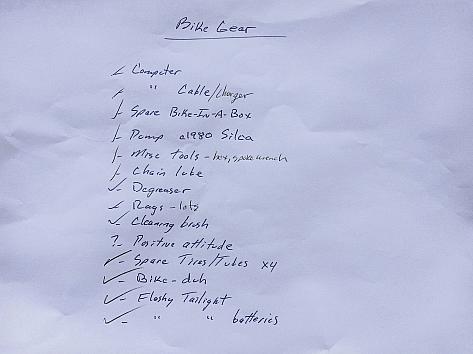 Bike Gear
- Computer
- " Cable/charger
- Spare Bike-In-A-Box
- Pump c1980 Silca
- Misc tools - hex, spoke wrench
- Chain lube
✓- Degreaser
- Rags - lots
✓- Cleaning brush
?- Positive attitude
✓- Spare Tires/Tubes x4
✓- Bike - duh
✓- Flashy Tailight
✓- " " batteries